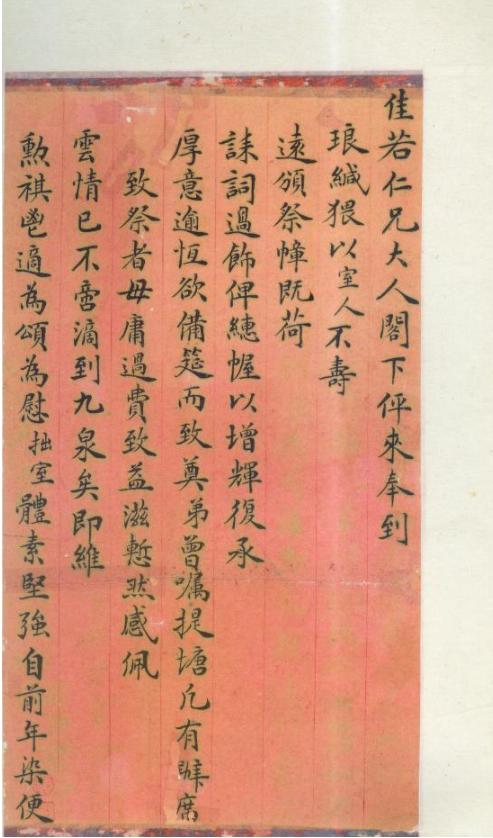 佳若仁兄大人閣下伻來奉到
琅緘猥以室人不壽
遠頒祭幛既荷
誄詞過飾俾繐幄以增輝復承
厚意逾恆欲備筵而致奠弟曾囑提塘凡有辦席
致祭者毋庸過費致益滋慙恧感佩
雲情已不啻滴到九泉矣即維
勲祺鬯適為頌為慰拙室體素堅強自前年染便